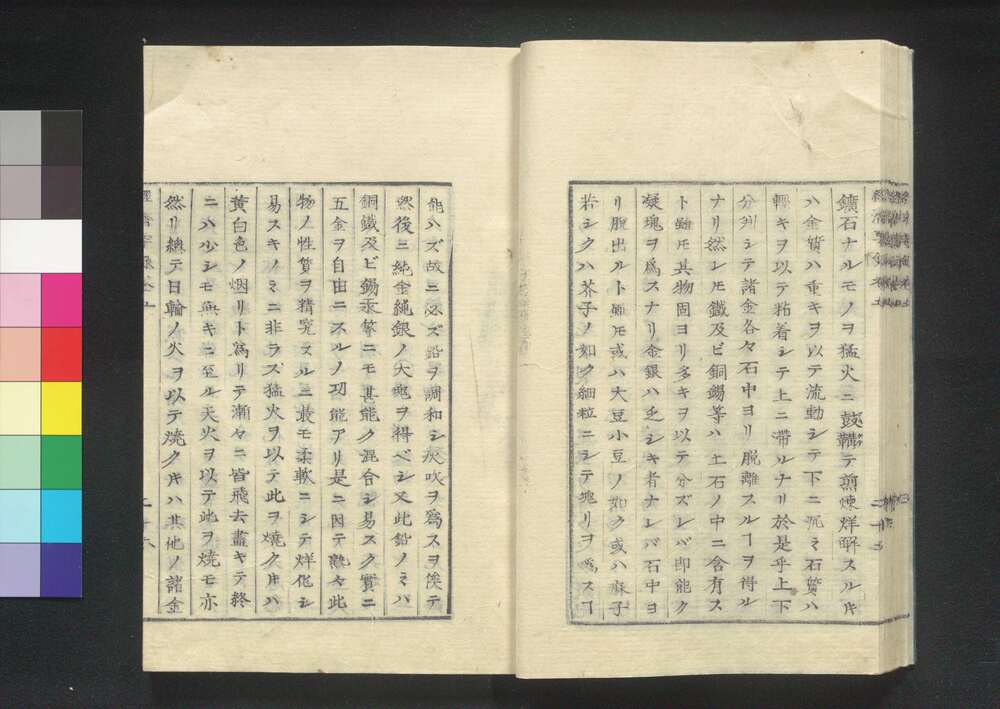 鑛石ナルモノヲ猛火ニ鼓鞴テ煎煉烊解スルㇳキ
ハ金質ハ重キヲ以テ流動シテ下ニ沉ミ石質ハ
輕キヲ以テ粘着シテ上ニ滯ルナリ於是乎上下
分判シテ諸金各々石中ヨリ脱離スルヿヲ得ル
ナリ然レモ鐵及ビ銅錫等ハ土石ノ中ニ含有ス
ト雖モ其物固ヨリ多キヲ以テ分ズレバ即能ク
凝塊ヲ爲スナリ金銀ハ乏シキ者ナレバ石中ヨ
リ脱出ルト雖モ或ハ大豆小豆ノ如ク或ハ麻子
若シクハ芥子ノ如ク細粒ニシテ塊リヲ爲スヿ
能ハズ故ニ必ズ鉛ヲ調和シ灰吹ヲ爲スヲ俟テ
然後ニ純金純銀ノ大塊ヲ得ベシ又此鉛ノミハ
銅鐵及ビ錫汞等ニモ甚能ク混合シ易スク實ニ
五金ヲ自由ニスルノ功能アリ是ニ因テ熟々此
物ノ性質ヲ精究スルニ最モ柔軟ニシテ烊化シ
易スキノミニ非ラズ猛火ヲ以テ此ヲ燒クㇳキハ
黄白色ノ烟リト爲リテ漸々ニ皆飛去盡キテ終
ニハ少シモ無キニ至ル天火ヲ以テ此ヲ燒モ亦
然リ總テ日輪ノ火ヲ以テ燒クㇳキハ其他ノ諸金